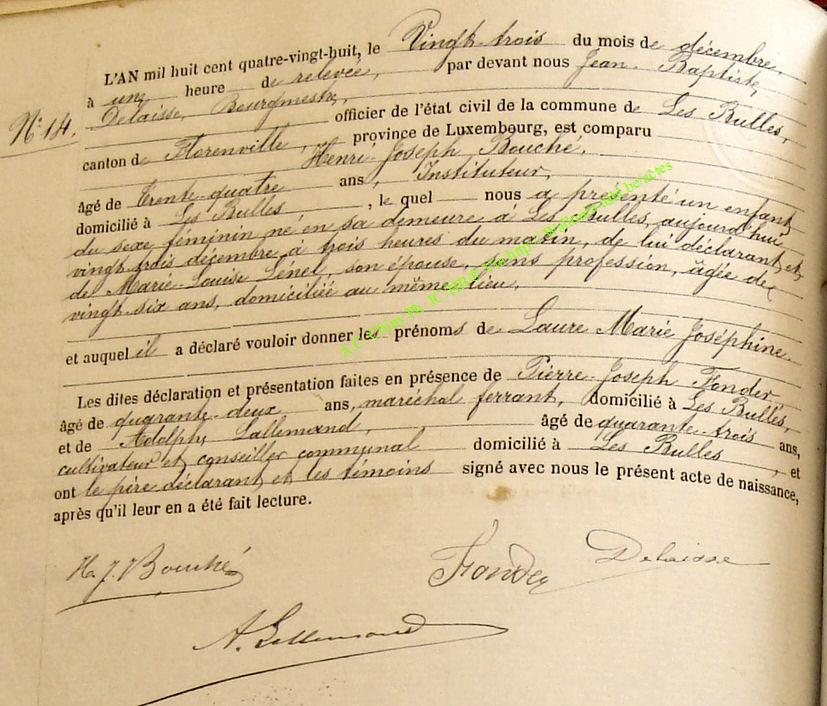 L'AN mil huit cent quatre-vingt-huit, le Vingt-trois du mois de décembre,
à une heure de relevée, par devant nous Jean-Baptiste
Delaisse, Bourgmestre,
officier de l'état civil de la commune de Les Bulles,
N° 14.
canton de Florenville, province de Luxembourg, est comparu
Henri-Joseph Bouché,
âgé de trente-quatre ans, Instituteur,
domicilié à Les Bulles, le quel nous a présenté un enfant
du sexe féminin né en sa demeure à Les Bulles, aujourd'hui
vingt trois décembre, à trois heures du matin, de lui déclarant et
de Marie-Louise Lénel, son épouse, sans profession, âgée de
vingt-six ans, domiciliée au même lieu,
et auquel il a déclaré vouloir donner les prénoms de Laure Marie Joséphine.
Les dites déclaration et présentation faites en présence de Pierre-Joseph Fonder,
âgé de quarante-deux ans, maréchal ferrant, domicilié à Les Bulles,
et de Adolphe Lallemand, âgé de quarante-trois ans,
cultivateur et conseiller communal domicilié à Les Bulles, et
ont le père déclarant et les témoins signé avec nous le présent acte de naissance,
après qu'il leur en a été fait lecture.
H. J. Bouché
Fonder
Delaisse
A. Lallemand